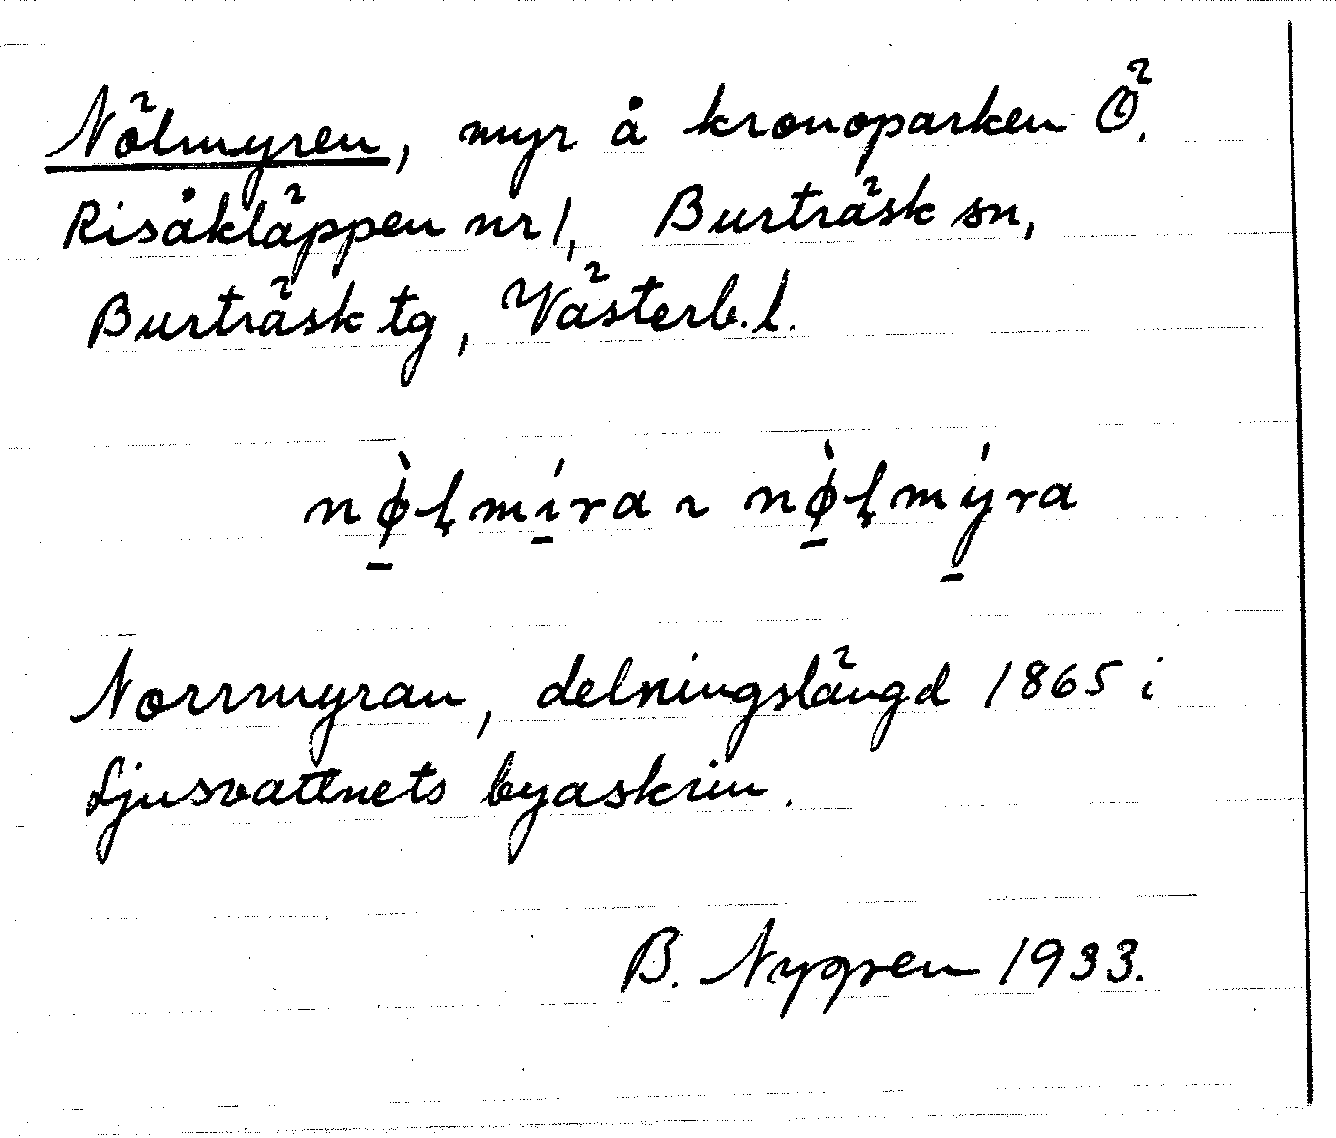 Nölmyren, myr å kronoparken Ö.
Risåkläppen nr 1, Burträsk sn,
Burträsk tg, Västerb. l.
nø̠̀ɭmí̠ra ~ nø̠̀ɭmý̠ra
Norrmyran, delningslängd 1865 i
Ljusvattnets byaskrin.
B. Nygren 1933.